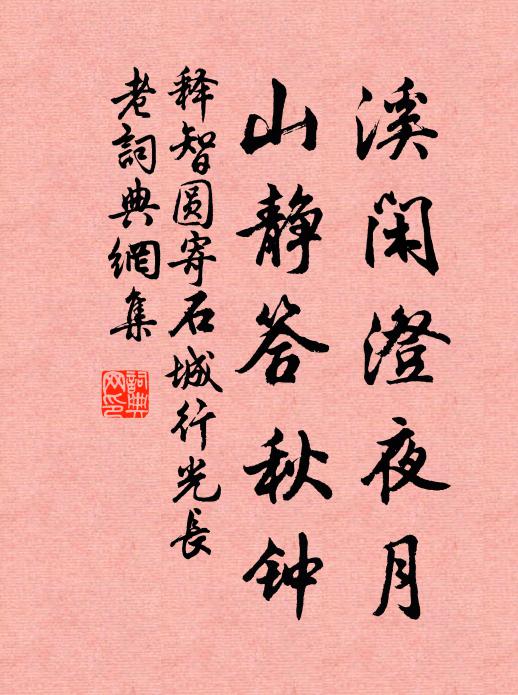 溪闲澄夜月
山静答秋钟
释智圆寄石城行光长
老詞典網集
詞典网印